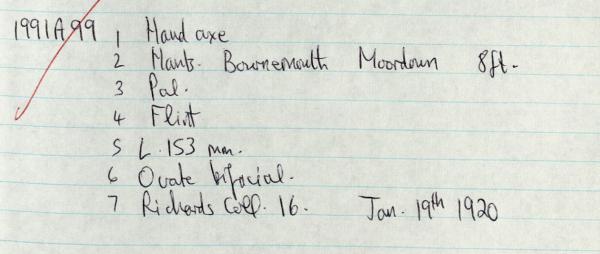 1991A99 1 Hand axe
2 Hants. Bournemouth Moordown 8ft.
3 Pal.
4 Flint
5 L. 153 mm.
6 Ovate bifacial.
7 Richards Coll. 16. Jan. 19th 1920